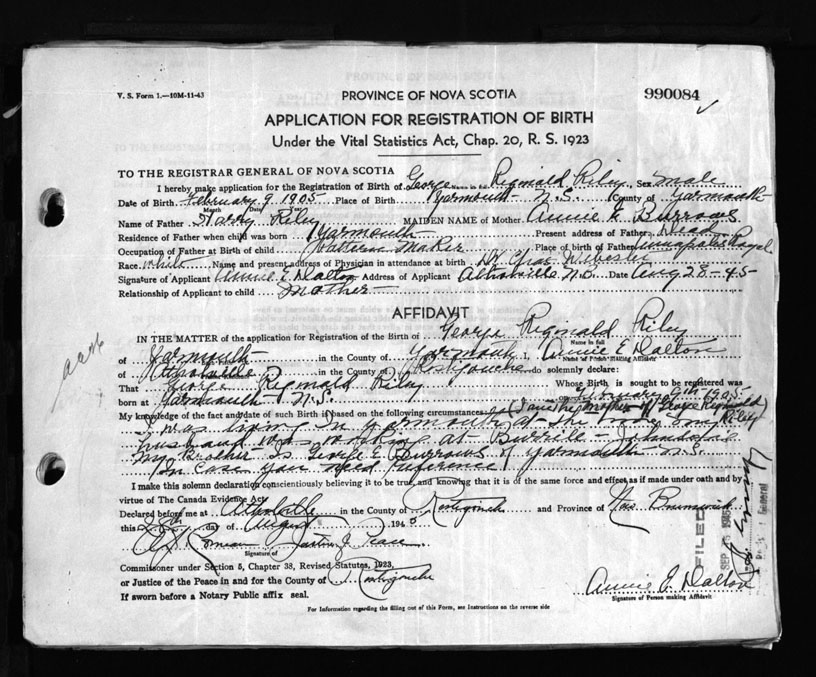 V. S. Form 1.—10M-11-43
PROVINCE OF NOVA SCOTIA
990084
APPLICATION FOR REGISTRATION OF BIRTH
Under the Vital Statistics Act, Chap. 20, R. S. 1923
TO THE REGISTRAR GENERAL OF NOVA SCOTIA
I hereby make application for the Registration of Birth of George Reginald Riley, Sex Male
Name in full
Date of Birth February 9 1905 Place of Birth Yarmouth N.S. County of Yarmouth
Month Date Year
Name of Father Harry Riley MAIDEN NAME of Mother Annie E Burrows
Residence of Father when child was born Yarmouth Present address of Father Dead
Occupation of Father at Birth of child Pattern Maker Place of birth of Father Annapolis Royal
Race white Name and present address of Physician in attendance at birth Dr Chas Webester
Signature of Applicant Annie E. Dalton Address of Applicant Atholville N.B. Date Aug 28-45-
Relationship of Applicant to child Mother
AFFIDAVIT
IN THE MATTER of the application for Registration of the Birth of George Reginald Riley
Name in full
of Yarmouth in the County of Yarmouth I, Annie E Dalton
Name of Person making Affidavit
of Atholville in the County of Restigouche do solemnly declare:
That George Reginald Riley Whose Birth is sought to be registered was
born at Yarmouth N.S. 9th 1905
My knowledge of the fact and date of such Birth is based on the following circumstances (I am the mother of George Reginald Riley)
I was living in Yarmouth at the time my
husband was working at Burrell - Johnson
my Brother is George E Burrows of Yarmouth N.S.
(In case you need reference)
I make this solemn declaration conscientiously believing it to be true, and knowing that it is of the same force and effect as if made under oath and by
virtue of The Canada Evidence Act.
Declared before me at Atholville in the County of Restigouche and Province of New Brunswick
this 28th day of August 1945
Justice of Peace
Signature of
Commissioner under Section 5, Chapter 38, Revised Statutes, 1923.
or Justice of the Peace in and for the County of Restigouche
If sworn before a Notary Public affix seal.
Annie E Dalton
Signature of Person making Affidavit
For Information regarding the filling out of this Form, see Instructions on the reverse side
FILED
SEP